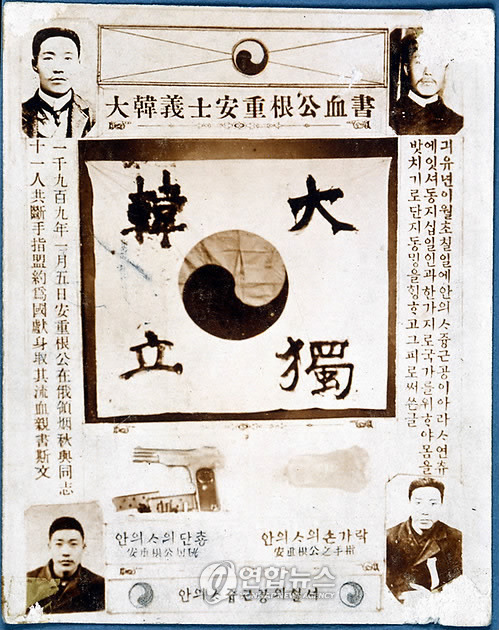 大韓義士安重根公血書
긔유년이월초칠일에안의ᄉᆞ즁근공이아라ᄉᆞ연츄
에잇셔동지십일인과한가지로국가를위ᄒᆞ야몸을
밧치기로단지동밍을ᄒᆡᆼᄒᆞ고그피로써쓴글
大韓
獨立
一千九百九年一月五日安重根公在俄領烟秋與同志
十一人共斷手指盟約爲國獻身取其流血親書斯文
안의ᄉᆞ의단춍
安重根公
안의ᄉᆞ의손가락
安重根公之手指
연합뉴스
YONHAP NEWS AGENCY
안의ᄉᆞ즁근공의혈셔